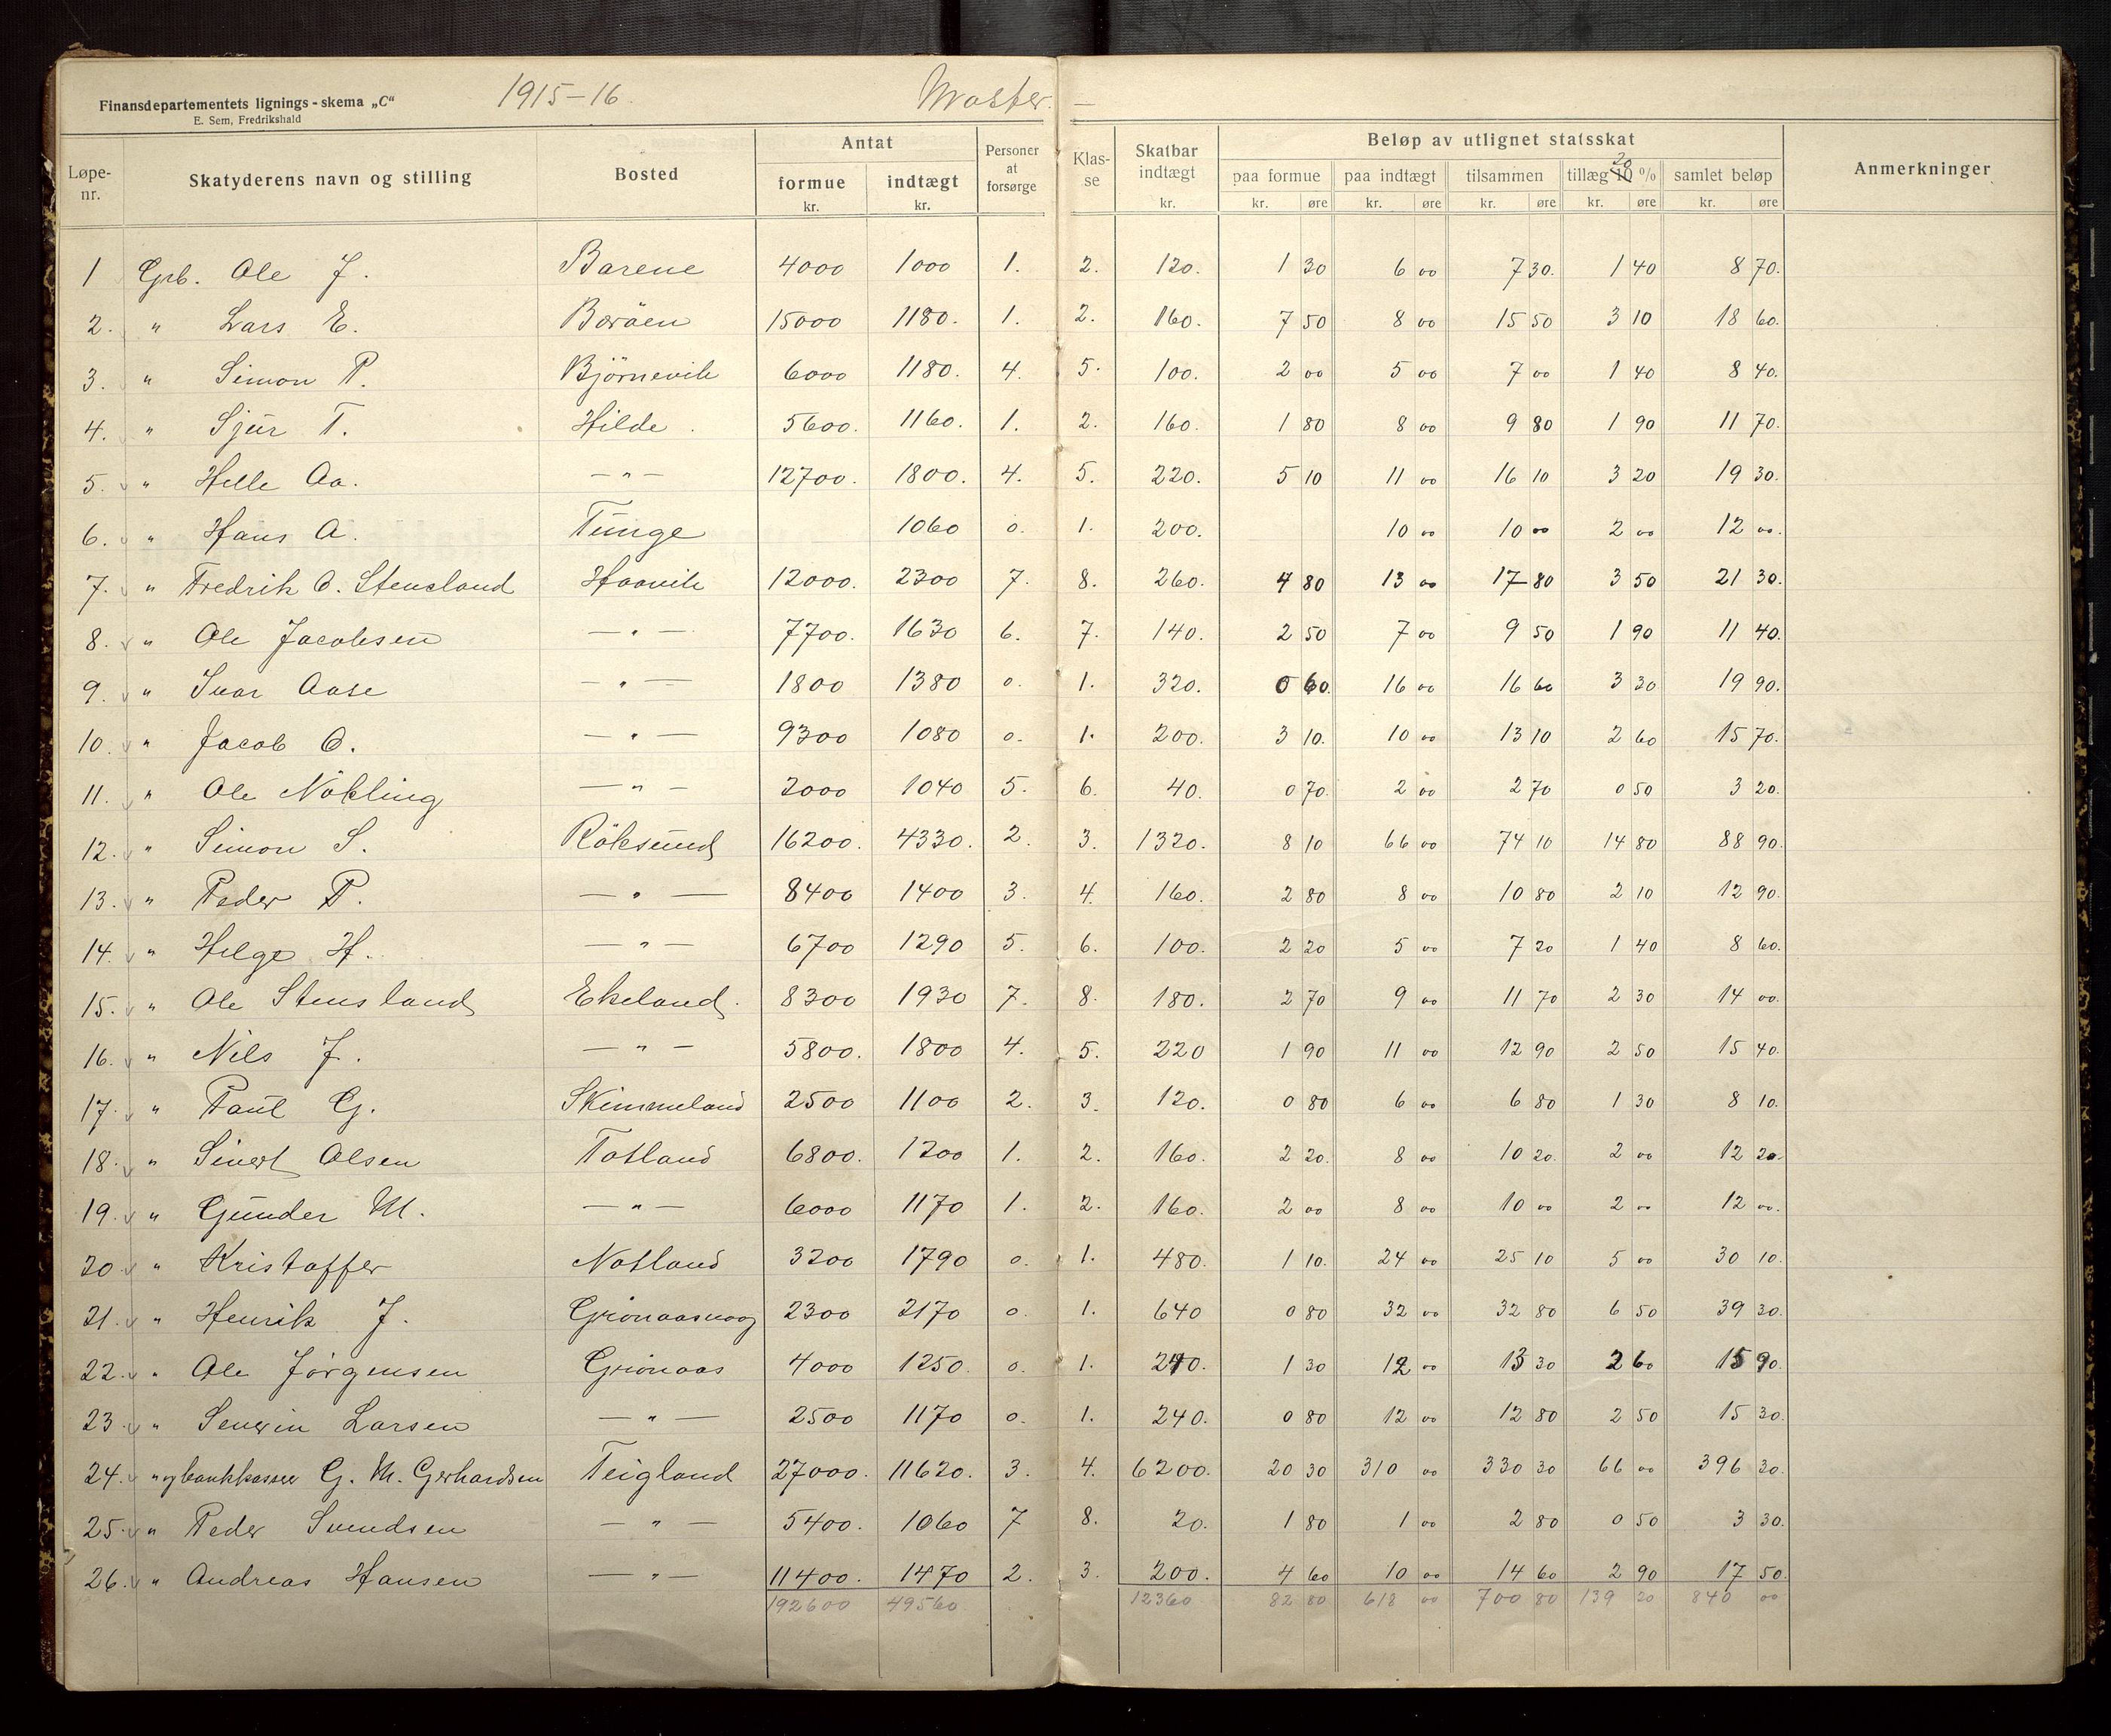 Finansdepartementets lignings-skema „C“ 1915-16. Moster. —
E. Sem, Fredrikshald
Løpe-nr. Skatyderens navn og stilling Bosted Antat formue kr. indtægt kr. Personer at forsørge Klas-se Skatbar indtægt kr. Beløp av utlignet statsskat paa formue kr. øre paa indtægt kr. øre tilsammen kr. øre tillæg 10 20 % kr. øre samlet beløp kr. øre Anmerkninger
1 Grb. Ole J. Barene 4000 1000 1. 2. 120. 1 30 6 00 7 30. 1 40 8 70.
2. " Lars E. Boröen 15000 1180. 1. 2. 160. 7 50 8 00 15 50 3 10 18 60.
3. " Simon P. Björnevik 6000 1180. 4. 5. 100. 2 00 5 00 7 00 1 40 8 40.
4. " Sjur T. Hilde. 5600. 1160. 1. 2. 160. 1 80 8 00 9 80 1 90 11 70.
5. " Helle Aa. — " — 12700. 1800. 4. 5. 220. 5 10 11 00 16 10 3 20 19 30.
6. " Hans A. Tunge 1060 0. 1. 200. 10 00 10 00 2 00 12 00.
7. " Fredrik O. Stensland Haavik 12000. 2300 7. 8. 260. 4 80 13 00 17 80 3 50 21 30.
8. " Ole Jacobsen — " — 7700. 1630 6. 7. 140. 2 50 7 00 9 50 1 90 11 40.
9. " Ivar Aase — " — 1800 1380 0. 1. 320. 0 60. 16 00 16 60 3 30 19 90.
10. " Jacob O. — " — 9300 1080 0. 1. 200. 3 10. 10 00 13 10 2 60 15 70.
11. " Ole Nökling — " — 2000 1040 5. 6. 40. 0 70. 2 00 2 70 0 50 3 20.
12. " Simon S. Röksund 16200. 4330. 2. 3. 1320. 8 10 66 00 74 10 14 80 88 90.
13. " Peder P. — " — 8400 1400 3. 4. 160. 2 80 8 00 10 80 2 10 12 90.
14. " Helge H. — " — 6700 1290 5. 6. 100. 2 20 5 00 7 20 1 40 8 60.
15. " Ole Stensland Ekeland. 8300 1930 7. 8. 180. 2 70 9 00 11 70 2 30 14 00.
16. " Nils J. — " — 5800. 1800 4. 5. 220 1 90 11 00 12 90 2 50 15 40.
17. " Paul G. Skimmeland 2500 1100 2. 3. 120. 0 80 6 00 6 80 1 30 8 10.
18. " Sivert Olsen Totland 6800. 1200 1. 2. 160. 2 20. 8 00 10 20. 2 00 12 20.
19. " Gunder M. — " — 6000 1170 1. 2. 160. 2 00 8 00 10 00 2 00 12 00.
20. " Kristoffer Notland 3200 1790 0. 1. 480. 1 10. 24 00 25 10 5 00 30 10.
21. " Henrik J. Grönaasvaag 2300 2170 0. 1. 640 0 80 32 00 32 80 6 50 39 30.
22. " Ole Jörgensen Grönaas 4000 1250. 0. 1. 240. 1 30 12 00 13 30 2 60 15 90.
23. " Severin Larsen — " — 2500 1170 0. 1. 240. 0 80 12 00 12 80 2 50 15 30.
24. " og bankkasser G. M. Gerhardsen Teigland 27000. 11620. 3. 4. 6200. 20 30 310 00 330 30 66 00 396 30.
25. " Peder Svendsen — " — 5400. 1060 7 8. 20. 1 80 1 00 2 80 0 50 3 30.
26. " Andreas Hansen — " — 11400. 1470 2. 3. 200. 4 60 10 00 14 60 2 90 17 50.
192600 49560 12360 82 80 618 00 700 80 139 20 840 00